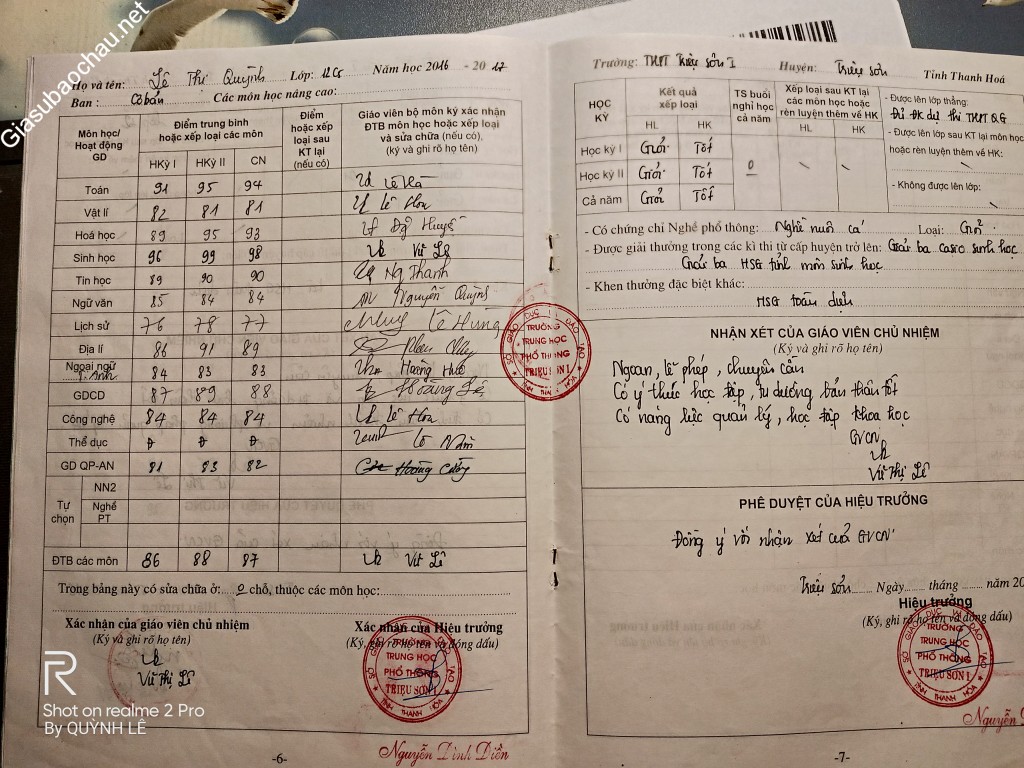 Giasubaochau.net
Họ và tên: Lê Thị Quỳnh Lớp: 12C5 Năm học 2016 - 2017
Ban: Cơ bản Các môn học nâng cao:
Môn học/ Hoạt động GD
Điểm trung bình hoặc xếp loại các môn
HKỳ I HKỳ II CN
Điểm hoặc xếp loại sau KT lại (nếu có)
Giáo viên bộ môn ký xác nhận ĐTB môn học hoặc xếp loại và sửa chữa (nếu có), (ký và ghi rõ họ tên)
Toán 91 95 94 Lê Hà
Vật lí 82 81 81 Lê Hoa
Hoá học 89 95 93
Sinh học 96 99 98 Vũ Lê
Tin học 89 90 90 Ng Thanh
Ngữ văn 85 84 84 Nguyễn Quỳnh
Lịch sử 76 78 77 Lê Hùng
Địa lí 86 91 89
Ngoại ngữ T. Anh 84 83 83 Hoàng Huê
GDCD 87 89 88 Hoàng Lê
Công nghệ 84 84 84 Lê Hoa
Thể dục Đ Đ Đ
GD QP-AN 81 83 82 Hoàng Công
Tự chọn
NN2
Nghề PT
ĐTB các môn 86 88 87 Vũ Lê
Trong bảng này có sửa chữa ở: 0 chỗ, thuộc các môn học:
Xác nhận của giáo viên chủ nhiệm
(Ký và ghi rõ họ tên)
Vũ Thị Lê
Xác nhận của Hiệu trưởng
(Ký, ghi rõ họ tên và đóng dấu)
SỞ GIÁO DỤC VÀ ĐÀO TẠO
TRƯỜNG
TRUNG HỌC
PHỔ THÔNG
TRIỆU SƠN I
TỈNH THANH HÓA
Nguyễn Đình Diễn
-6-
Shot on realme 2 Pro
By QUỲNH LÊ
Trường: THPT Triệu Sơn I Huyện: Triệu Sơn Tỉnh Thanh Hoá
HỌC KỲ
Kết quả xếp loại
HL HK
TS buổi nghỉ học cả năm
Xếp loại sau KT lại các môn học hoặc rèn luyện thêm về HK
HL HK
Học kỳ I Giỏi Tốt
Học kỳ II Giỏi Tốt 0
Cả năm Giỏi Tốt
- Được lên lớp thẳng:
Đủ ĐK dự thi THPT QG
- Được lên lớp sau KT lại môn học hoặc rèn luyện thêm về HK:
- Không được lên lớp:
- Có chứng chỉ Nghề phổ thông: Nghề nuôi cá Loại: Giỏi
- Được giải thưởng trong các kì thi từ cấp huyện trở lên: Giải ba casio sinh học
Giải ba HSG tỉnh môn sinh học
- Khen thưởng đặc biệt khác:
HSG toàn diện
NHẬN XÉT CỦA GIÁO VIÊN CHỦ NHIỆM
(Ký và ghi rõ họ tên)
Ngoan, lễ phép, chuyên cần
Có ý thức học tập, tu dưỡng bản thân tốt
Có năng lực quản lý, học tập khoa học
GVCN
Vũ Thị Lê
SỞ GIÁO DỤC VÀ ĐÀO TẠO
TRƯỜNG
TRUNG HỌC
PHỔ THÔNG
TRIỆU SƠN I
TỈNH THANH HÓA
PHÊ DUYỆT CỦA HIỆU TRƯỞNG
Đồng ý với nhận xét của GVCN
Triệu Sơn Ngày tháng năm 20
Hiệu trưởng
(Ký, ghi rõ họ tên và đóng dấu)
SỞ GIÁO DỤC VÀ ĐÀO TẠO
TRƯỜNG
TRUNG HỌC
PHỔ THÔNG
TRIỆU SƠN I
TỈNH THANH HÓA
-7-